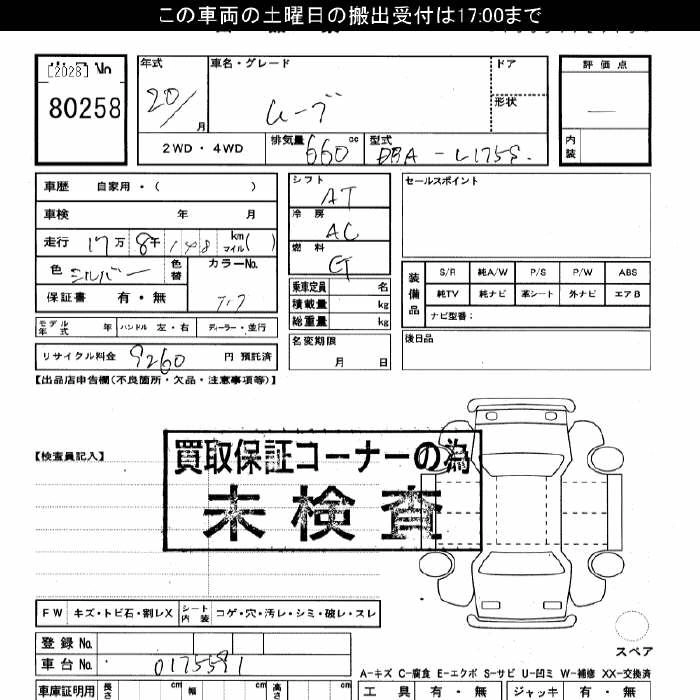 この車両の土曜日の搬出受付は17:00まで
[2028] No
80258
年式 20/ 月
車名・グレード ムーブ
ドア
形状
評価点
内装
2WD・4WD
排気量 660 cc
型式 DBA-L175S.
車歴 自家用・( )
車検 年 月
走行 17万 8千 148 km マイル( )
色 シルバー 色替
カラーNo.
保証書 有・無
モデル年式 年 ハンドル 左・右 ディーラー・並行
リサイクル料金 9260 円 預託済
シフト AT
冷房 AC
燃料 G
乗車定員 名
積載量 kg
総重量 kg
名変期限 月 日
セールスポイント
装備品 S/R 純A/W P/S P/W ABS
純TV 純ナビ 革シート 外ナビ エアB
ナビ型番:
後日品
【出品店申告欄(不良箇所・欠品・注意事項等)】
【検査員記入】
買取保証コーナーの為
未検査
FW キズ・トビ石・割レX シート内装 コゲ・穴・汚レ・シミ・破レ・スレ
スペア
登録No.
車台No. 0175591
A-キズ C-腐食 E-エクボ S-サビ U-凹ミ W-補修 XX-交換済
車庫証明用 長さ cm 幅 cm 高さ cm
工具 有・無 ジャッキ 有・無